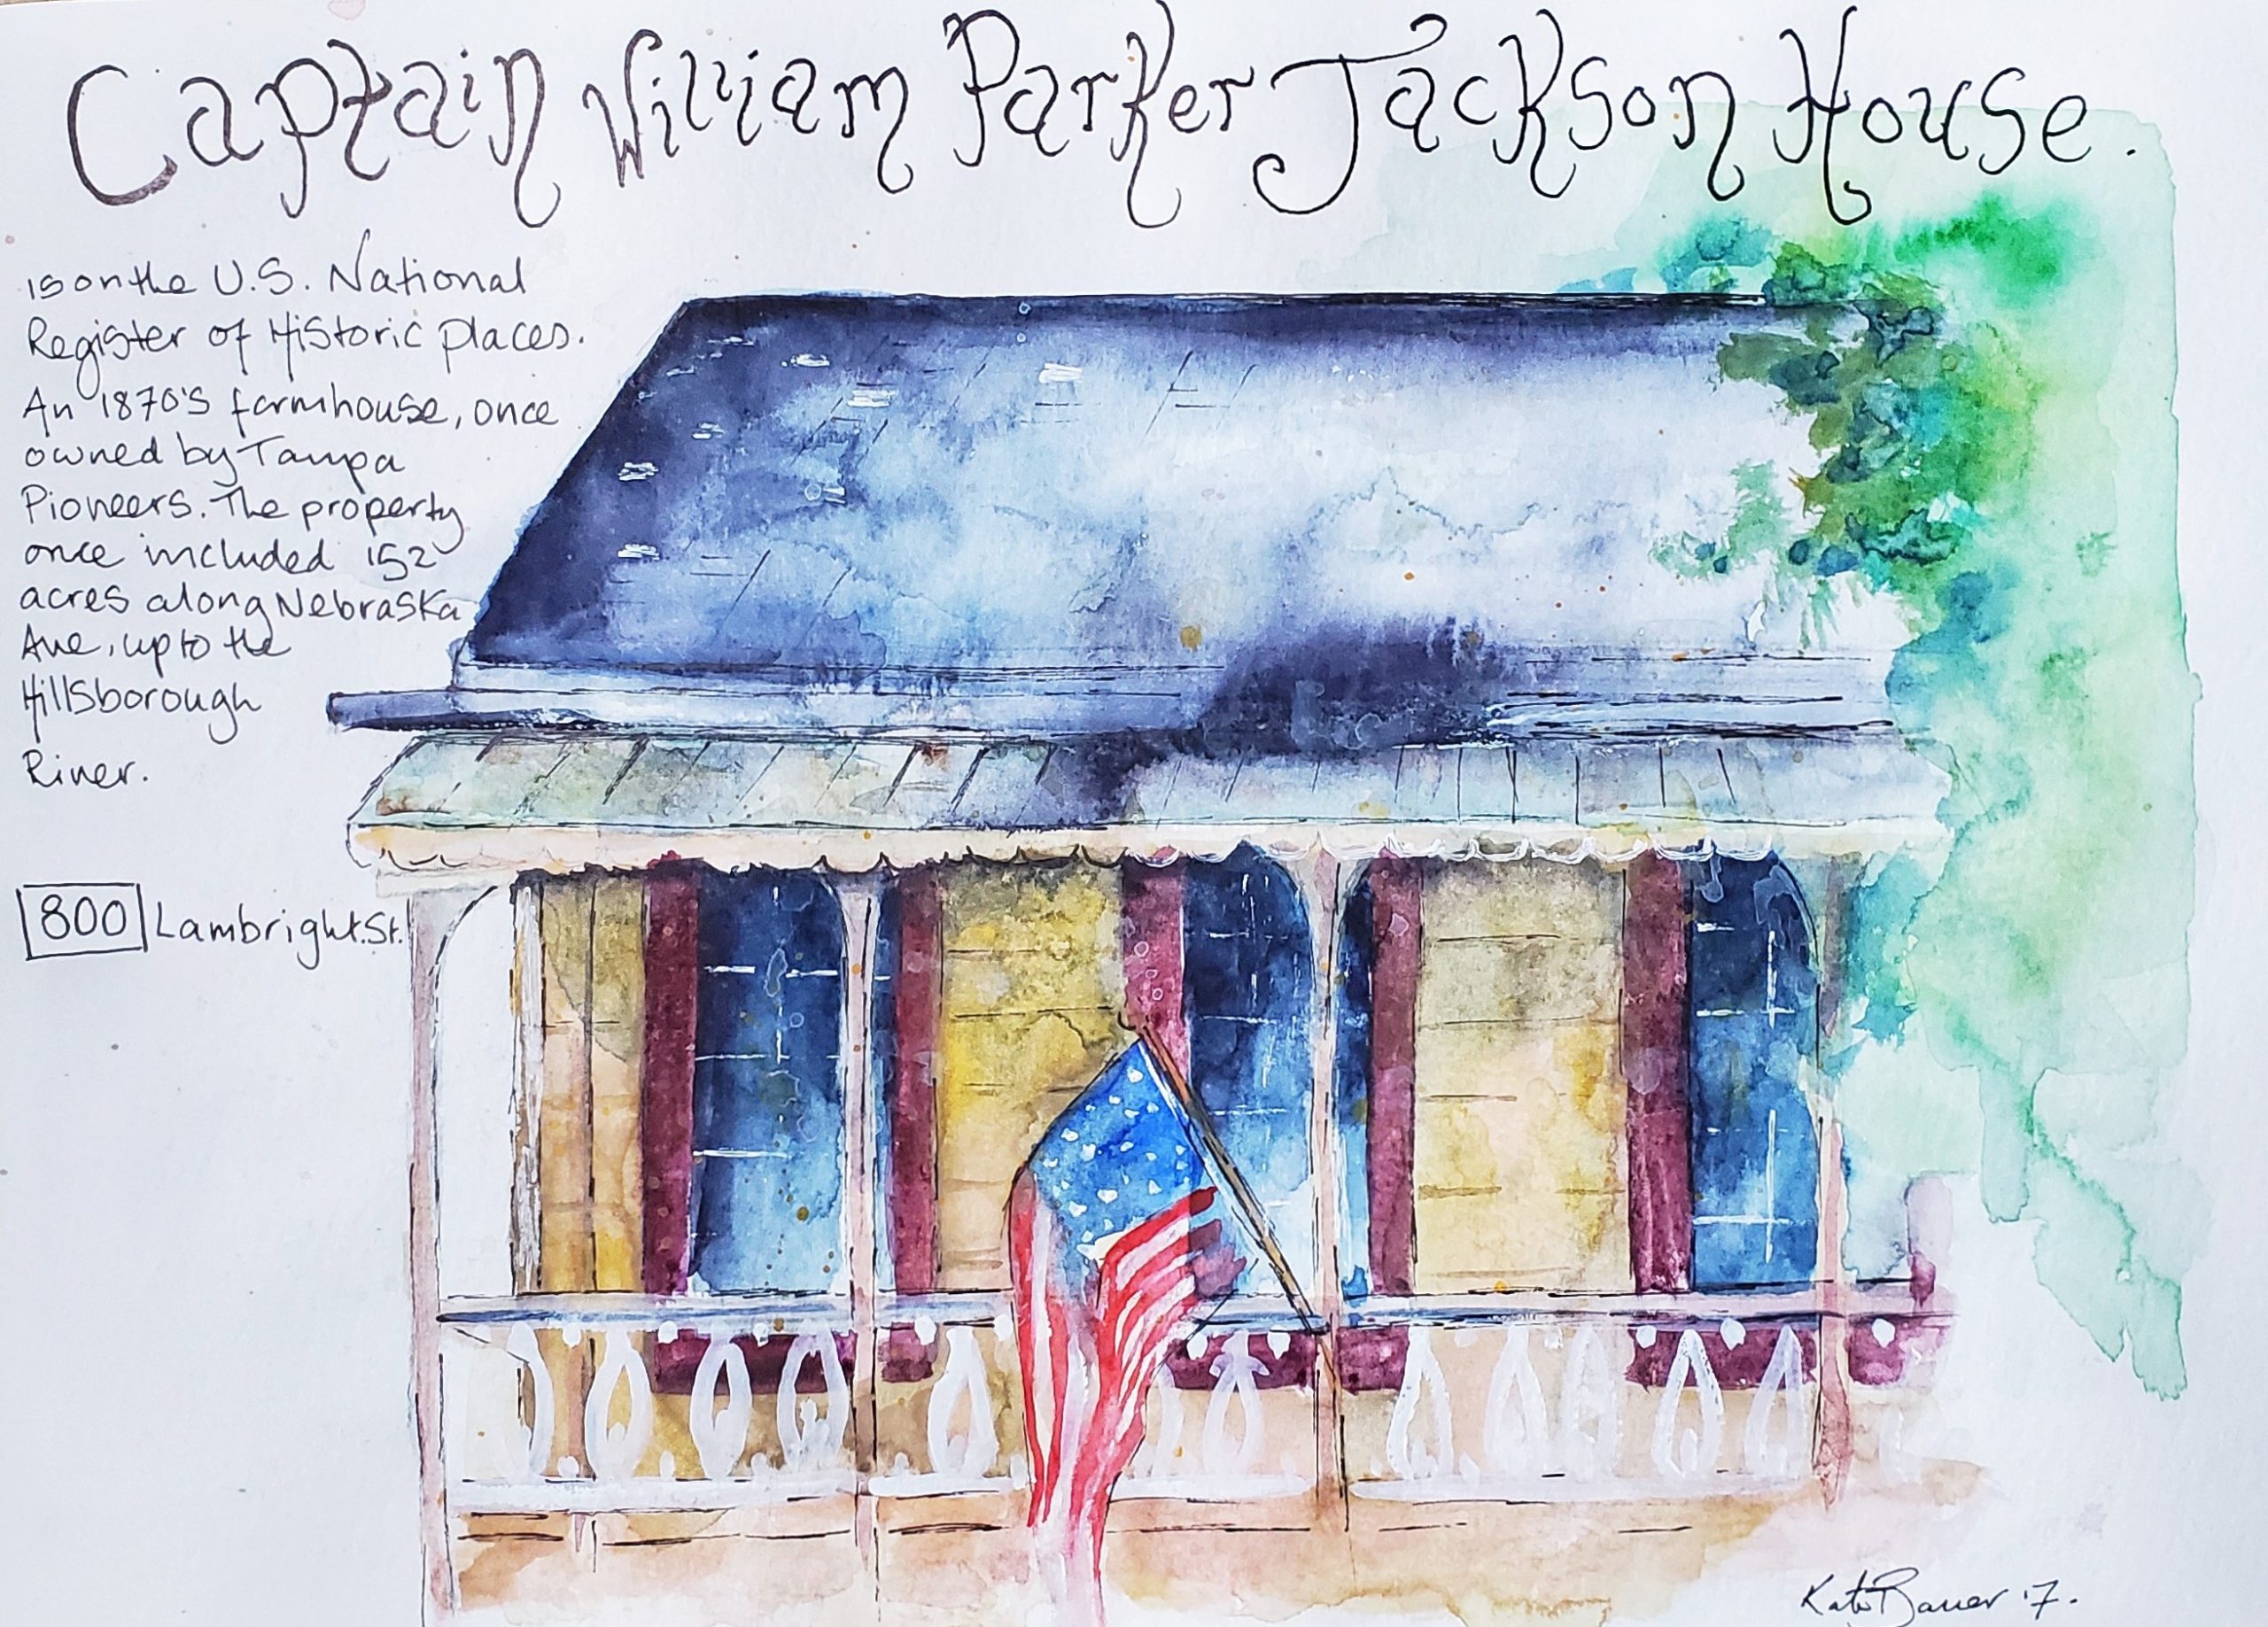 Captain William Parker Jackson House.
is on the U.S. National
Register of Historic Places.
An 1870's farmhouse, once
owned by Tampa
Pioneers. The property
once included 152
acres along Nebraska
Ave, up to the
Hillsborough
River.
800 Lambright.St.
Kate Bauer '17.